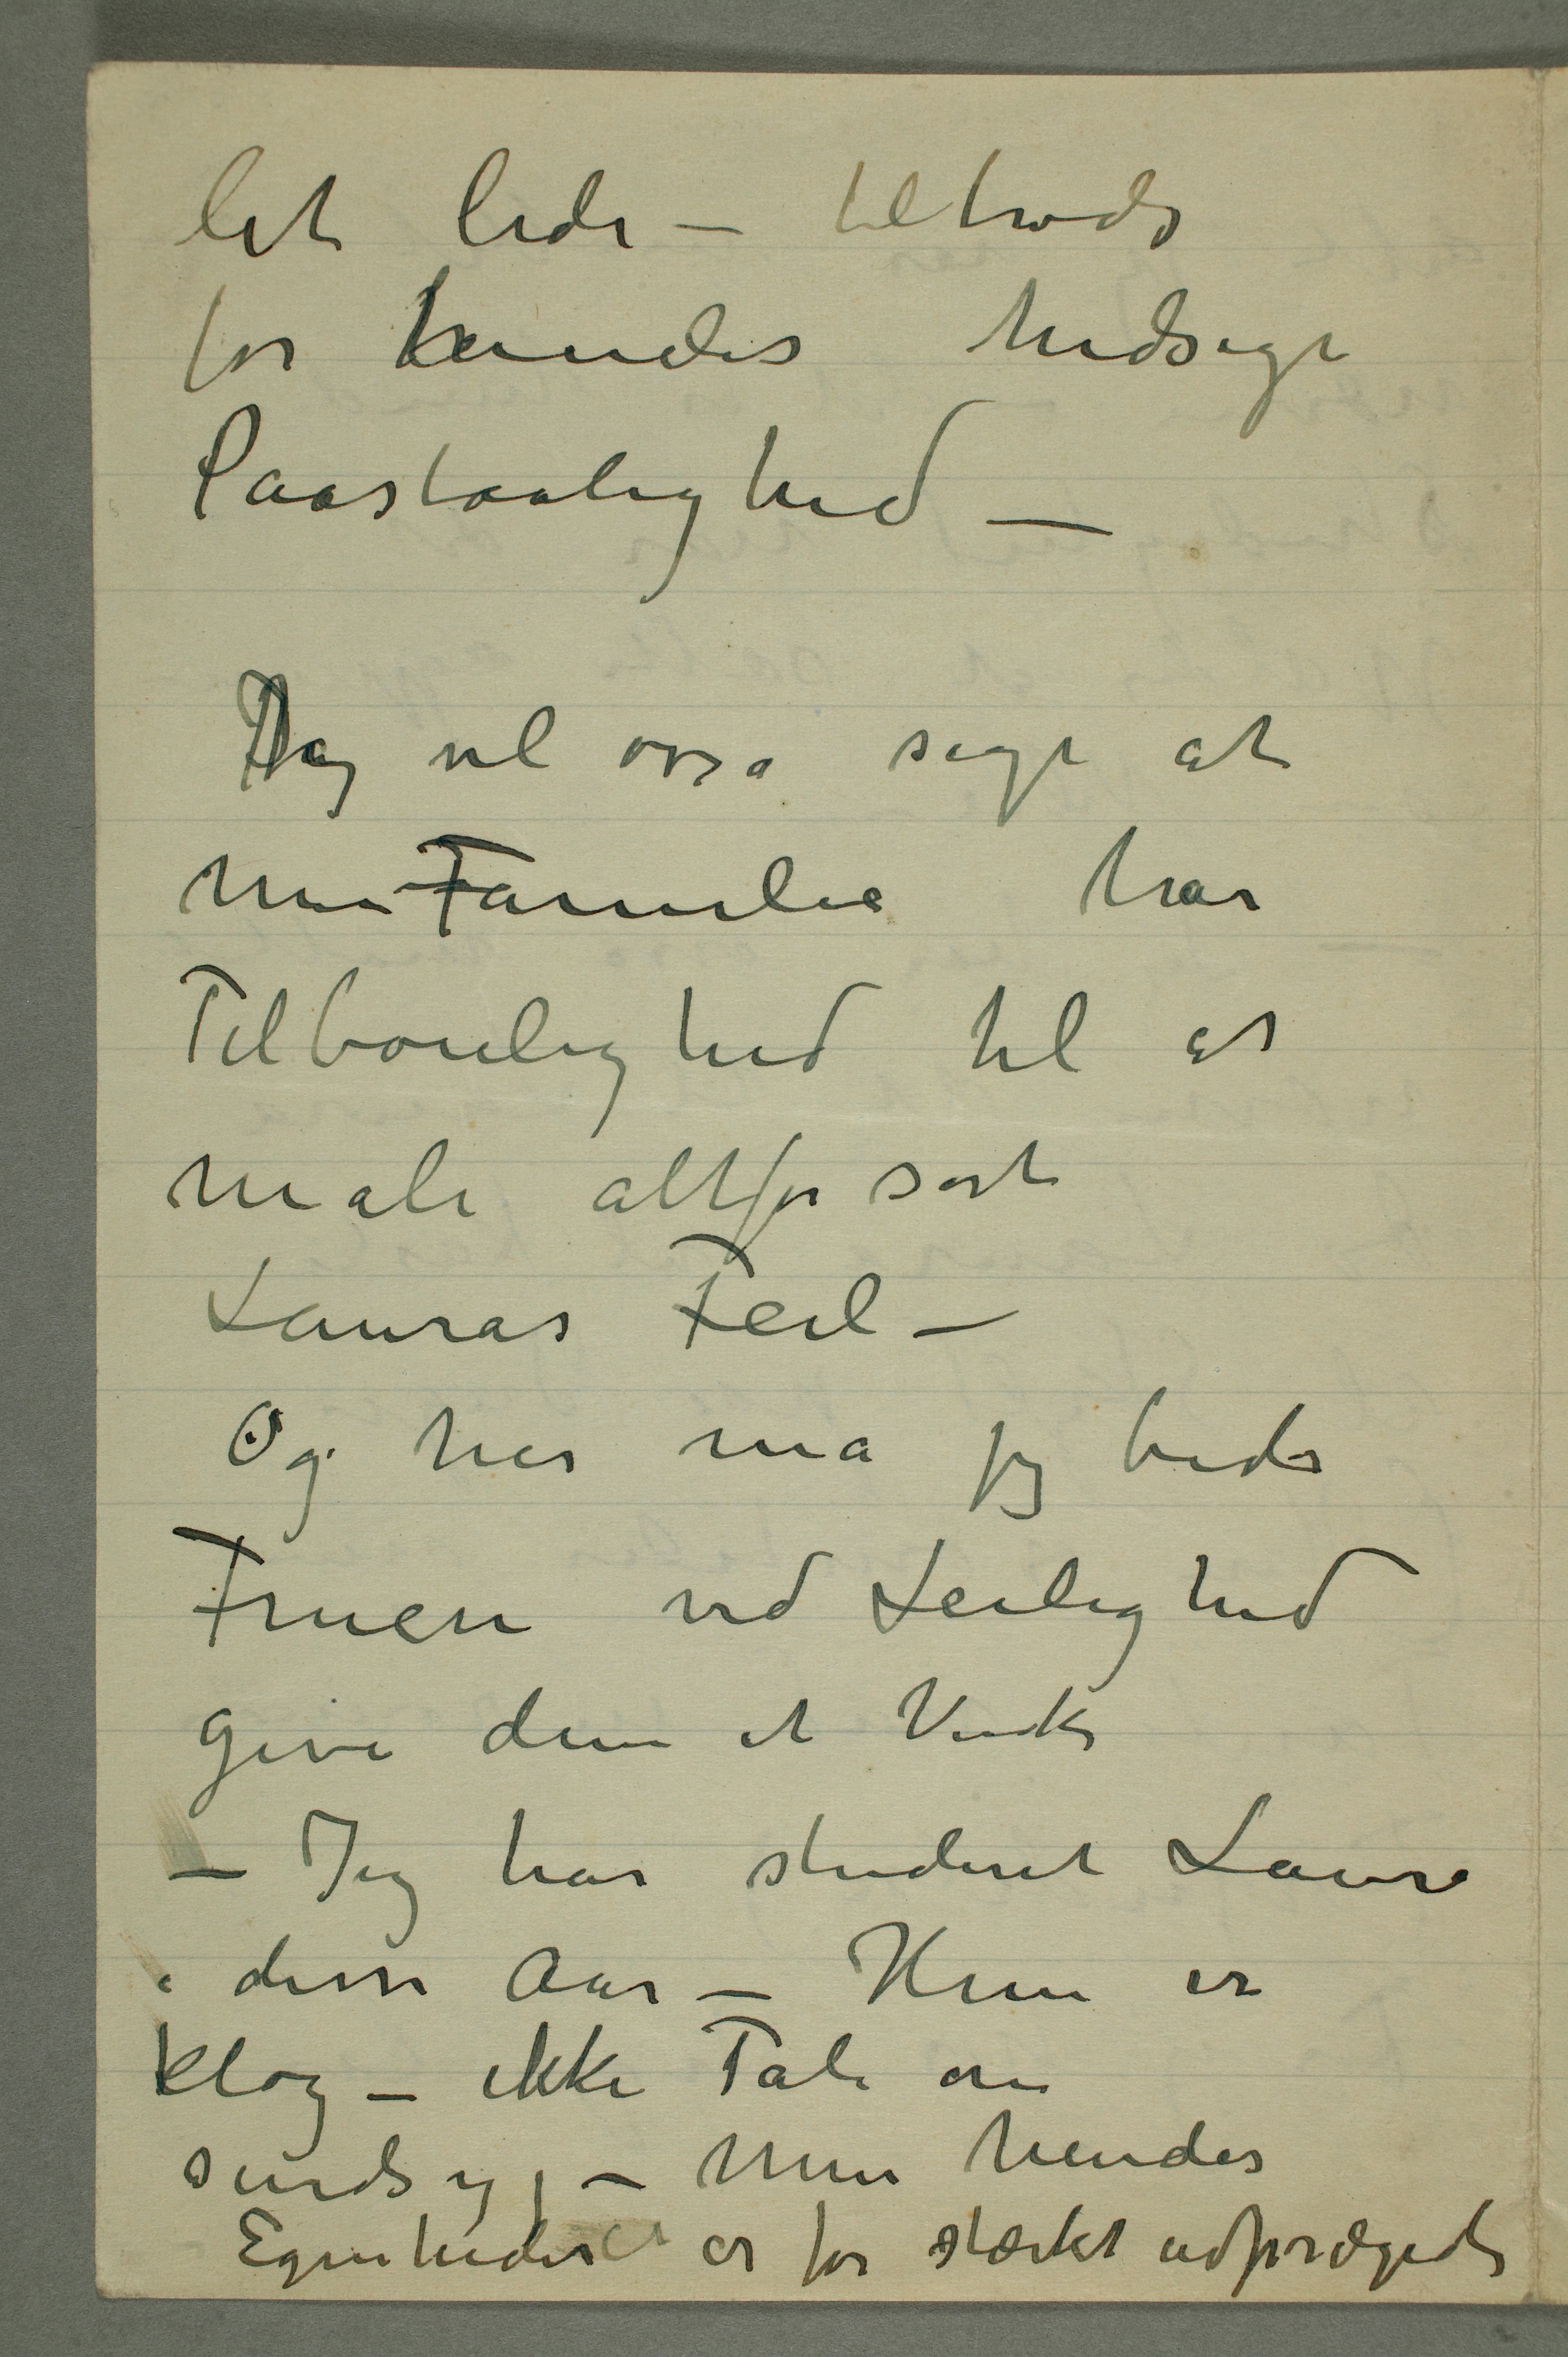 let lede – tiltrods
for hendes hidsige
Paastaalighed –
Jeg vil ossa sige at
min Familie har
Tilbøielighed til at
male altfor sort
Lauras Feil –
Og her må jeg bede
Fruen ved Leilighed
give dem et Vink
– Jeg har studeret Laura
i disse Aar – Hun er
klog – ikke Tale om
sindsyg – men hendes
Egenheder er for stærkt udprægede